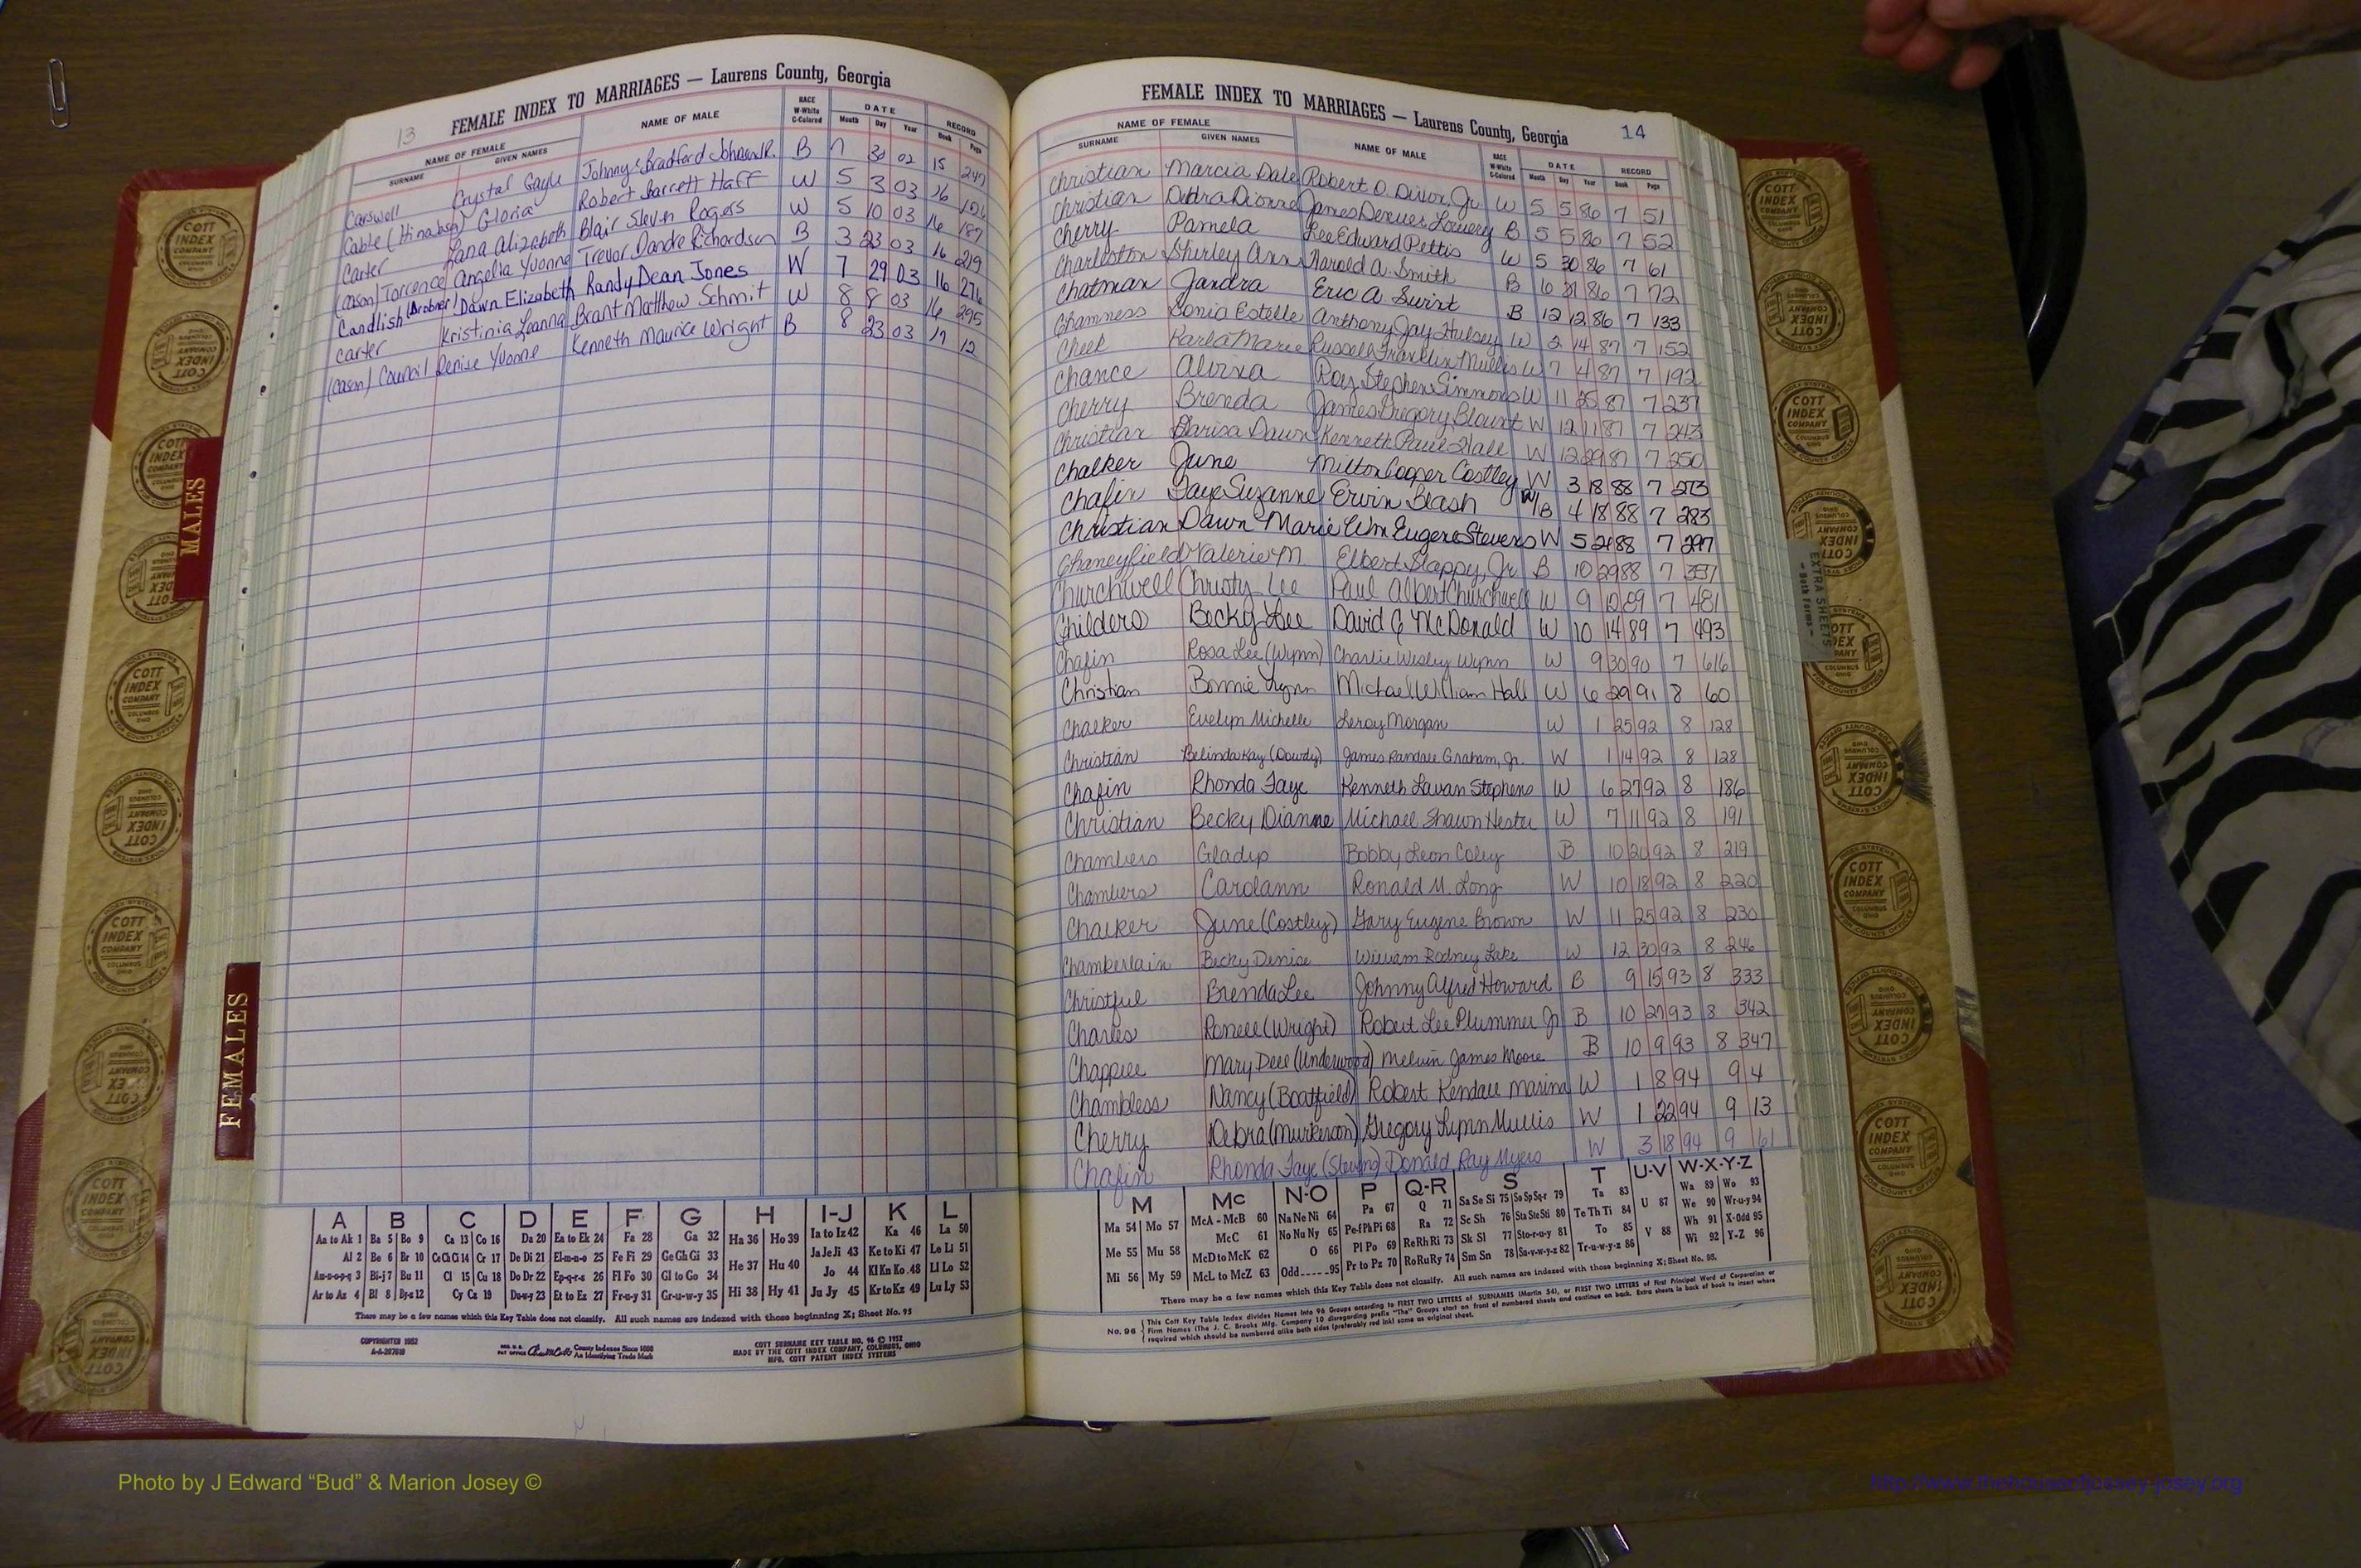 13
FEMALE INDEX TO MARRIAGES — Laurens County, Georgia
NAME OF FEMALE NAME OF MALE RACE W-White C-Colored DATE RECORD
SURNAME GIVEN NAMES Month Day Year Book Page
Carswell Crystal Gayle Johnny Bradford Johnson Jr. B 7 30 02 15 247
Cable (Hinabsen) Gloria Robert Barrett Haff W 5 3 03 16
Carter Lana Alizabeth Blair Steven Rogers W 5 10 03 16 187
(Cason) Torrence Angelia Yvonne Trevor Dandre Richardson B 3 23 03 16 219
Candlish Dawn Elizabeth Randy Dean Jones W 7 29 03 16 276
Carter Kristinia Leanna Brant Matthew Schmit W 8 8 03 16 295
(Cason) Council Denise Yvonne Kenneth Maurice Wright B 8 23 03 17 12
FEMALE INDEX TO MARRIAGES — Laurens County, Georgia 14
NAME OF FEMALE NAME OF MALE RACE W-White C-Colored DATE RECORD
SURNAME GIVEN NAMES Month Day Year Book Page
Christian Marcia Dale Robert O. Dixon, Jr. W 5 5 86 7 51
Christian Debra Dionne James Denver Lowery B 5 5 86 7 52
Cherry Pamela Lee Edward Pettis W 5 30 86 7 61
Charleston Shirley Ann Harold A. Smith B 6 21 86 7 72
Chatman Jandra Eric A Swint B 12 12 86 7 133
Chamness Sonia Estelle Anthony Jay Hulsey W 2 14 87 7 152
Cheek Karla Marie Russell Franklin Mullis W 7 4 87 7 192
Chance Alvina Roy Stephen Simmons W 11 25 87 7 237
Cherry Brenda James Gregory Blount W 12 11 87 7 243
Christian Darisa Dawn Kenneth Paul Hall W 12 29 87 7 250
Chalker June Milton Cooper Costley W 3 18 88 7 273
Chafin Faye Suzanne Ervin Blash W/B 4 18 88 7 283
Christian Dawn Marie Wm Eugene Stevens W 5 21 88 7 297
Chaneyfield Valerie M. Elbert Slappy, Jr B 10 29 88 7 357
Churchwell Christy Lee Paul Albert Churchwell W 9 10 89 7 481
Childers Becky Lee David G McDonald W 10 14 89 7 493
Chafin Rosa Lee (Wynn) Charlie Wesley Wynn W 9 30 90 7 616
Christian Bonnie Lynn Michael William Hall W 6 29 91 8 60
Chalker Evelyn Michelle Leroy Morgan W 1 25 92 8 128
Christian Belinda Kay (Dowdy) James Randall Graham, Jr. W 1 14 92 8 128
Chafin Rhonda Faye Kenneth Lavan Stephens W 6 27 92 8 186
Christian Becky Dianne Michael Shawn Hester W 7 11 92 8 191
Chambers Gladys Bobby Leon Coley B 10 20 92 8 219
Chambers Carolann Ronald M. Long W 10 18 92 8 220
Chalker June (Costley) Gary Eugene Brown W 11 25 92 8 230
Chamberlain Becky Denise William Rodney Lake W 12 30 92 8 246
Christful Brenda Lee Johnny Alfred Howard B 9 15 93 8 333
Charles Ronell (Wright) Robert Lee Plummer Jr B 10 27 93 8 342
Chappell Mary Dell (Underwood) Melvin James Moore B 10 9 93 8 347
Chambless Nancy (Boatfield) Robert Kendall Marina W 1 8 94 9 4
Cherry Debra (Murkerson) Gregory Lynn Mullis W 1 22 94 9 13
Chafin Rhonda Faye (Stevens) Donald Ray Myers W 3 18 94 9 61
A B C D E F G H I-J K L
Aa to Ak 1 Ba 5 Bo 9 Ca 13 Co 16 Da 20 Ea to Ek 24 Fa 28 Ga 32 Ha 36 Ho 39 Ia to Iz 42 Ka 46 La 50
Al 2 Be 6 Br 10 Ce Ch Ci 14 Cr 17 De Di 21 El-m-n-o 25 Fe Fi 29 Ge Gh Gi 33 He 37 Hu 40 Ja Je Ji 43 Ke to Ki 47 Le Li 51
Am-n-o-p-q 3 Bi-j 7 Bu 11 Cl 15 Cu 18 Do Dr 22 Ep-q-r-s 26 Fl Fo 30 Gl to Go 34 Jo 44 Kl Kn Ko 48 Ll Lo 52
Ar to Az 4 Bl 8 By-z 12 Cy Cz 19 Du-w-y 23 Et to Ez 27 Fr-u-y 31 Gr-u-w-y 35 Hi 38 Hy 41 Ju Jy 45 Kr to Kz 49 Lu Ly 53
There may be a few names which this Key Table does not classify. All such names are indexed with those beginning X; Sheet No. 95
COPYRIGHTED 1952
County Indexes Since 1888
An Identifying Trade Mark
COTT SURNAME KEY TABLE NO. 96 © 1952
MADE BY THE COTT INDEX COMPANY, COLUMBUS, OHIO
MFG. COTT PATENT INDEX SYSTEMS
M Mc N-O P Q-R S T U-V W-X-Y-Z
Ma 54 Mo 57 McA - McB 60 Na Ne Ni 64 Pa 67 Q 71 Sa Se Si 75 So Sp Sq-r 79 Ta 83 U 87 Wa 89 Wo 93
Me 55 Mu 58 McC 61 No Nu Ny 65 Pe-f Ph Pi 68 Ra 72 Sc Sh 76 Sta Ste Sti 80 Te Th Ti 84 We 90 Wr-u-y 94
McD to McK 62 O 66 Pl Po 69 Re Rh Ri 73 Sk Sl 77 Sto-r-u-y 81 To 85 V 88 Wh 91 X-Odd 95
Mi 56 My 59 McL to McZ 63 Odd 95 Pr to Pz 70 Ro Ru Ry 74 Sm Sn 78 Sa-v-w-y-z 82 Tr-u-w-y-z 86 Wi 92 Y-Z 96
There may be a few names which this Key Table does not classify. All such names are indexed with those beginning X; Sheet No. 95.
No. 96 This Cott Key Table Index divides Names into 96 Groups according to FIRST TWO LETTERS of SURNAMES (Martin 54), or FIRST TWO LETTERS of First Principal Word of Corporation or
Firm Names (The J. C. Brooks Mfg. Company 10 disregarding prefix "The" Groups start on front of numbered sheets and continue on back. Extra sheets in back of book to insert where
required which should be numbered alike both sides (preferably red ink) same as original sheet.
MALES
FEMALES
EXTRA SHEETS
— Both Forms —
COTT INDEX COMPANY
COLUMBUS OHIO
INDEX SYSTEMS
FOR COUNTY OFFICES
Photo by J Edward “Bud” & Marion Josey ©
http://www.thehouseofjossey-josey.org